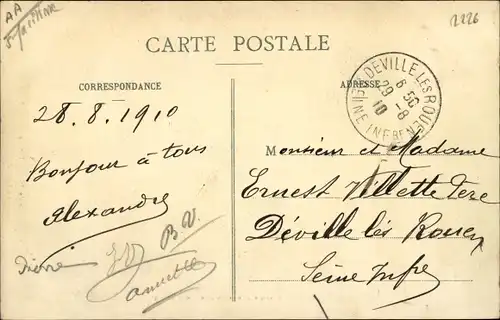 AA
2226
CARTE POSTALE
CORRESPONDANCE
ADRESSE
DEVILLE LES ROUEN
6 50
29 - 8
10
SEINE INFRE
28.8.1910
Bonjour à tous
Alexandre
B.V.
Pierre
Monsieur et Madame
Ernest Villette Père
Déville lès Rouen
Seine Infre